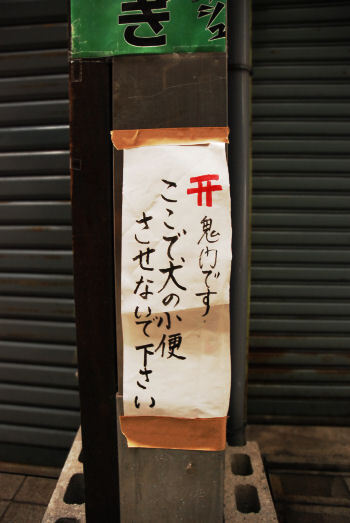 き
鬼門です.
ここで、犬の小便
させないで下さい